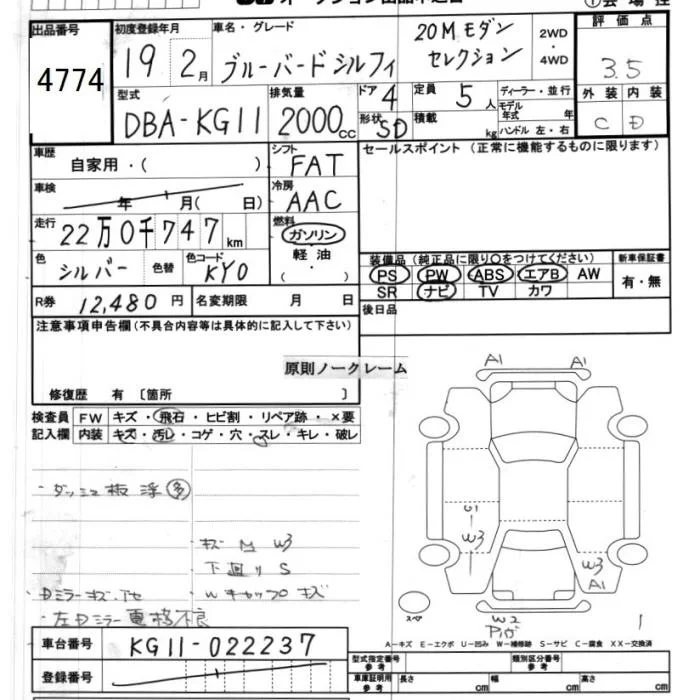 出品番号
4774
初度登録年月
19 2月
車名・グレード
ブルーバードシルフィ
20Mモダン
セレクション
2WD
・
4WD
評価点
3.5
外装 内装
C D
型式
DBA-KG11
排気量
2000cc
ドア 4
形状 SD
定員 5人
積載 kg
ディーラー・並行
モデル年式 年
ハンドル 左・右
車歴
自家用・( )
シフト
FAT
車検
年 月( 日)
冷房
AAC
走行
22万0千747km
燃料
ガソリン
軽油
( )
色
シルバー
色替
色コード
KY0
R券 12,480円
名変期限 月 日
セールスポイント(正常に機能するものに限ります)
装備品(純正品に限り○をつけてください)
PS PW ABS エアB AW
SR ナビ TV カワ
新車保証書
有・無
後日品
注意事項申告欄(不具合内容等は具体的に記入して下さい)
原則ノークレーム
修復歴 有〔箇所 〕
検査員
記入欄
FW キズ・飛石・ヒビ割・リペア跡・×要
内装 キズ・汚レ・コゲ・穴・スレ・キレ・破レ
・ダッシュ板浮多
キズ M W3
下廻りS
Dミラーキズ
Wキャップキズ
・左Dミラー電格不良
A1 A1
W3
W3
A1
W2
スペア
A−キズ E−エクボ U−凹み W−補修跡 S−サビ C−腐食 XX−交換済
車台番号
KG11-022237
登録番号
型式指定番号
参考
類別区分番号
参考
車庫証明用
参考
長さ cm
幅 cm
高さ cm